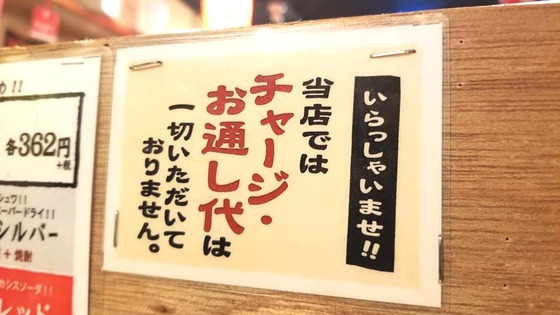 いらっしゃいませ!!
当店では
チャージ・
お通し代は
一切いただいて
おりません。
め!!
各362円
+税
シュワ!!
ーパードライ!!
シルバー
+焼酎
カシスソーダ!!
レッド